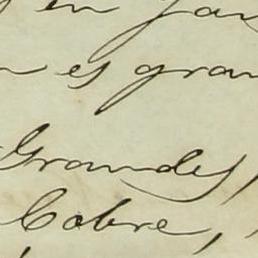 en
es gran
Grandes,
Cobre,